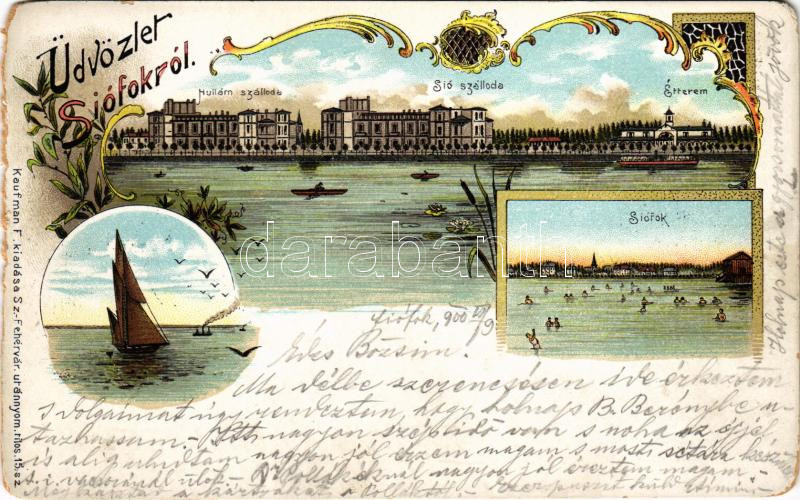 Üdvözlet
Siófokról.
Hullám szálloda
Sió szálloda
Étterem
Siófok
darabanth
Kaufman F. kiadása Sz.-Fehérvár. utánnyom. tilos. 15. sz.
Siófok, 900
Édes Bözsim.
Ma délbe szerencsésen ide érkeztem
s dolgaimat úgy rendeztem, hogy holnap B. Berénybe u-
tazhassam. - Itt nagyon szép idő van s noha az éjjel
is alig aludtam nagyon jól érzem magam s most sétára
nagyon jól éreztem magam
Holnap este a gyorsvonattal jövök